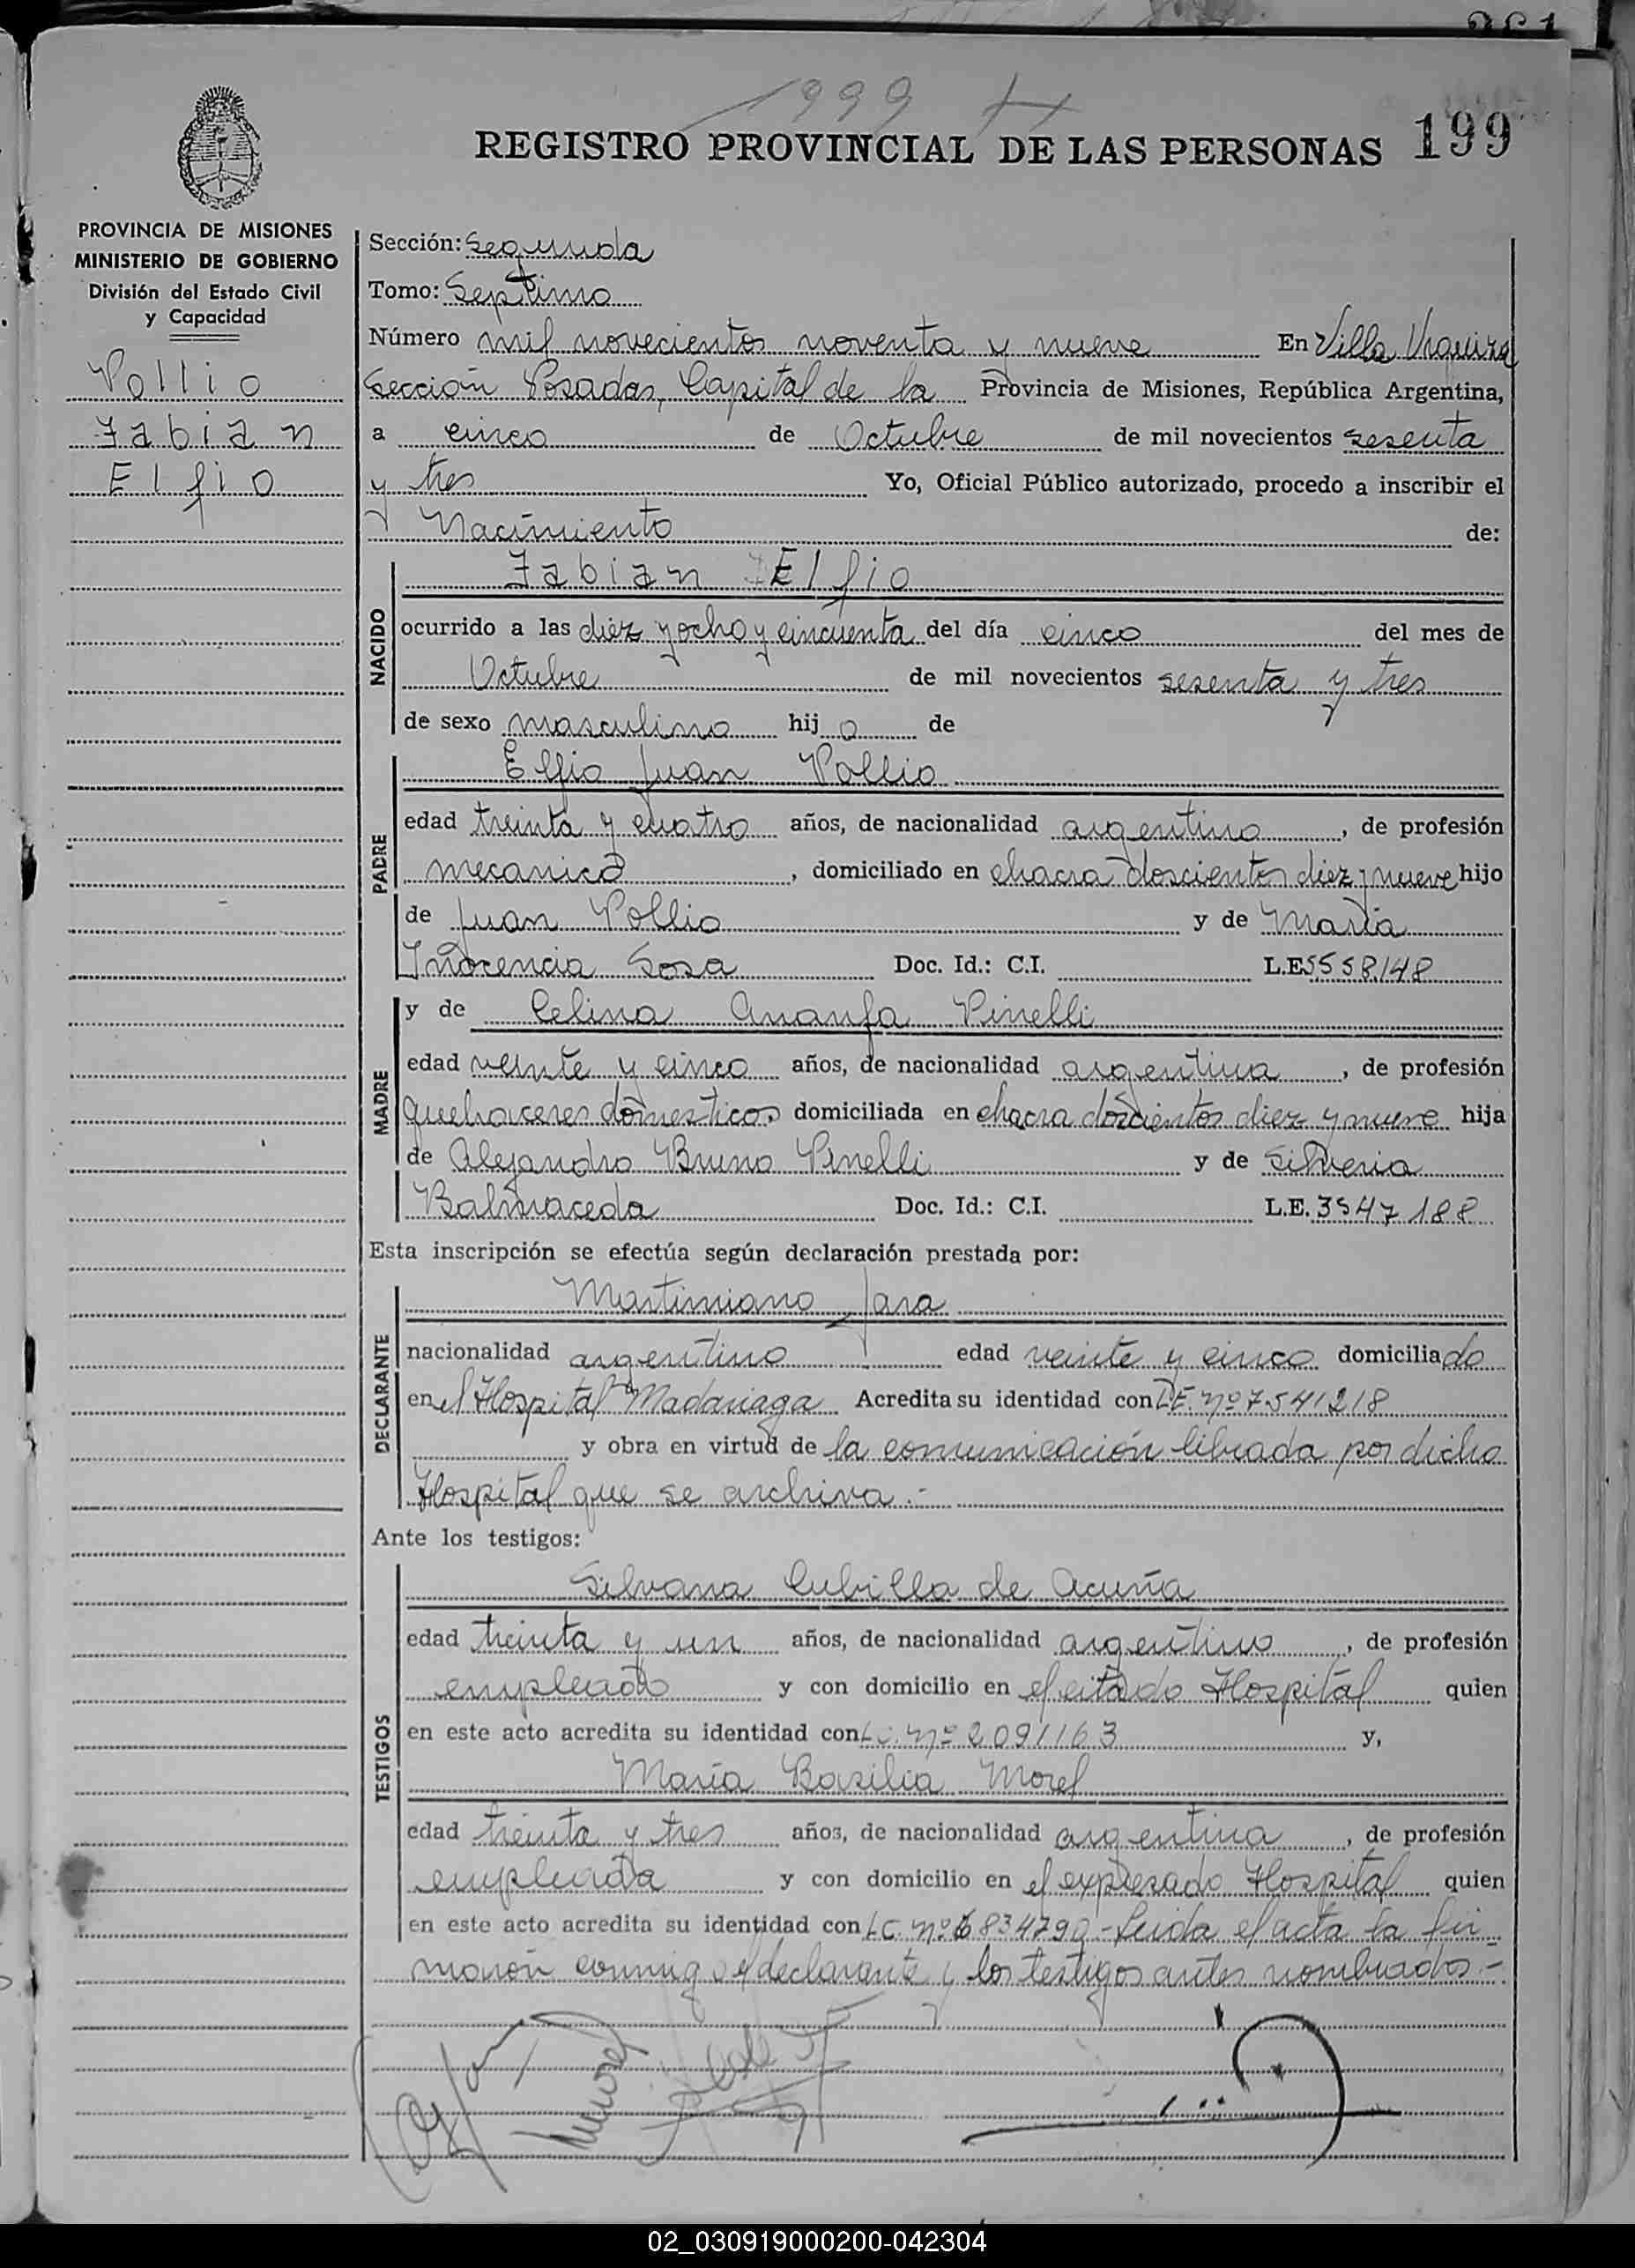 1999
REGISTRO PROVINCIAL DE LAS PERSONAS 199
PROVINCIA DE MISIONES
MINISTERIO DE GOBIERNO
División del Estado Civil
y Capacidad
Pollio
Fabian
Elfio
Sección: Segunda
Tomo: Septimo
Número mil novecientos noventa y nueve En Villa Urquiza
Sección Posadas, Capital de la Provincia de Misiones, República Argentina,
a cinco de Octubre de mil novecientos sesenta
y tres Yo, Oficial Público autorizado, procedo a inscribir el
Nacimiento de:
NACIDO
Fabian Elfio
ocurrido a las diez y ocho y cincuenta del día cinco del mes de
Octubre de mil novecientos sesenta y tres
de sexo masculino hijo de
PADRE
Elfio Juan Pollio
edad treinta y cuatro años, de nacionalidad argentino, de profesión
mecanico, domiciliado en chacra doscientos diez y nueve hijo
de Juan Pollio y de Maria
Inocencia Sosa Doc. Id.: C.I. L.E. 5558148
MADRE
y de Celina Pinelli
edad veinte y cinco años, de nacionalidad argentina, de profesión
quehaceres domesticos domiciliada en chacra doscientos diez y nueve hija
de Alejandro Bruno Pinelli y de Silveria
Balmaceda Doc. Id.: C.I. L.E. 3547188
Esta inscripción se efectúa según declaración prestada por:
DECLARANTE
Martiniano Jara
nacionalidad argentino edad veinte y cinco domiciliado
en el Hospital Madariaga Acredita su identidad con L.E. nº 7541218
y obra en virtud de la comunicación librada por dicho
Hospital que se archiva.-
Ante los testigos:
TESTIGOS
Silvana Cubilla de Acuña
edad treinta y un años, de nacionalidad argentino, de profesión
empleado y con domicilio en el citado Hospital quien
en este acto acredita su identidad con L.C. nº 2091163 y,
María Basilia Morel
edad treinta y tres años, de nacionalidad argentina, de profesión
empleada y con domicilio en el expresado Hospital quien
en este acto acredita su identidad con L.C. nº 6834790 - Leida el acta la fir-
maron conmigo el declarante y los testigos antes nombrados.-
02_030919000200-042304